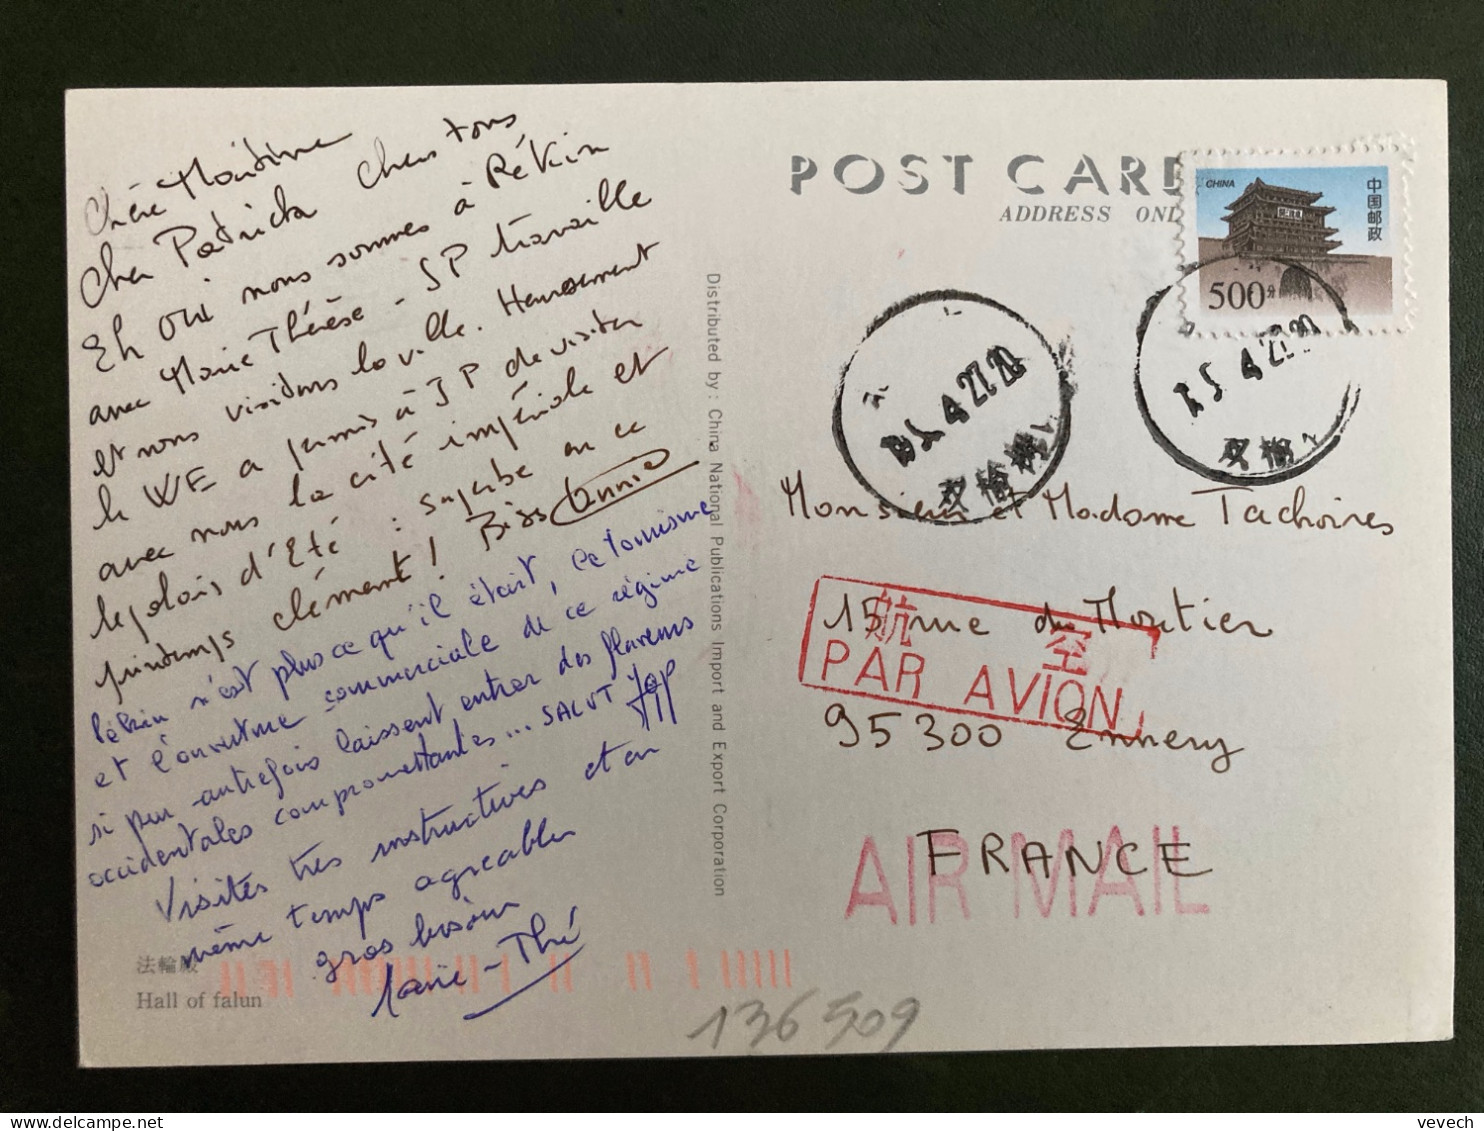 Chère Martine
Cher Patrick Chers tous
Eh oui nous sommes à Pékin
avec Marie Thérèse - JP travaille
et nous visitons la ville. Heureusement
le WE a permis à JP de visiter
avec nous la cité impériale et
le palais d'Eté : superbe en ce
printemps clément ! Bises Annie
Pékin n'est plus ce qu'il était, le tourisme
et l'ouverture commerciale de ce régime
si peu autrefois laissent entrer des flaveurs
occidentales compromettantes... SALUT JP
Visites très instructives et en
même temps agréables
gros bisous
Marie-Thé
法輪殿
Hall of falun
Distributed by: China National Publications Import and Export Corporation
POST CARD
ADDRESS ONL
CHINA
中国邮政
500分
Monsieur et Madame Tachoires
15 rue du Moutier
95300 Ennery
FRANCE
航空
PAR AVION
AIR MAIL
136509
vevech